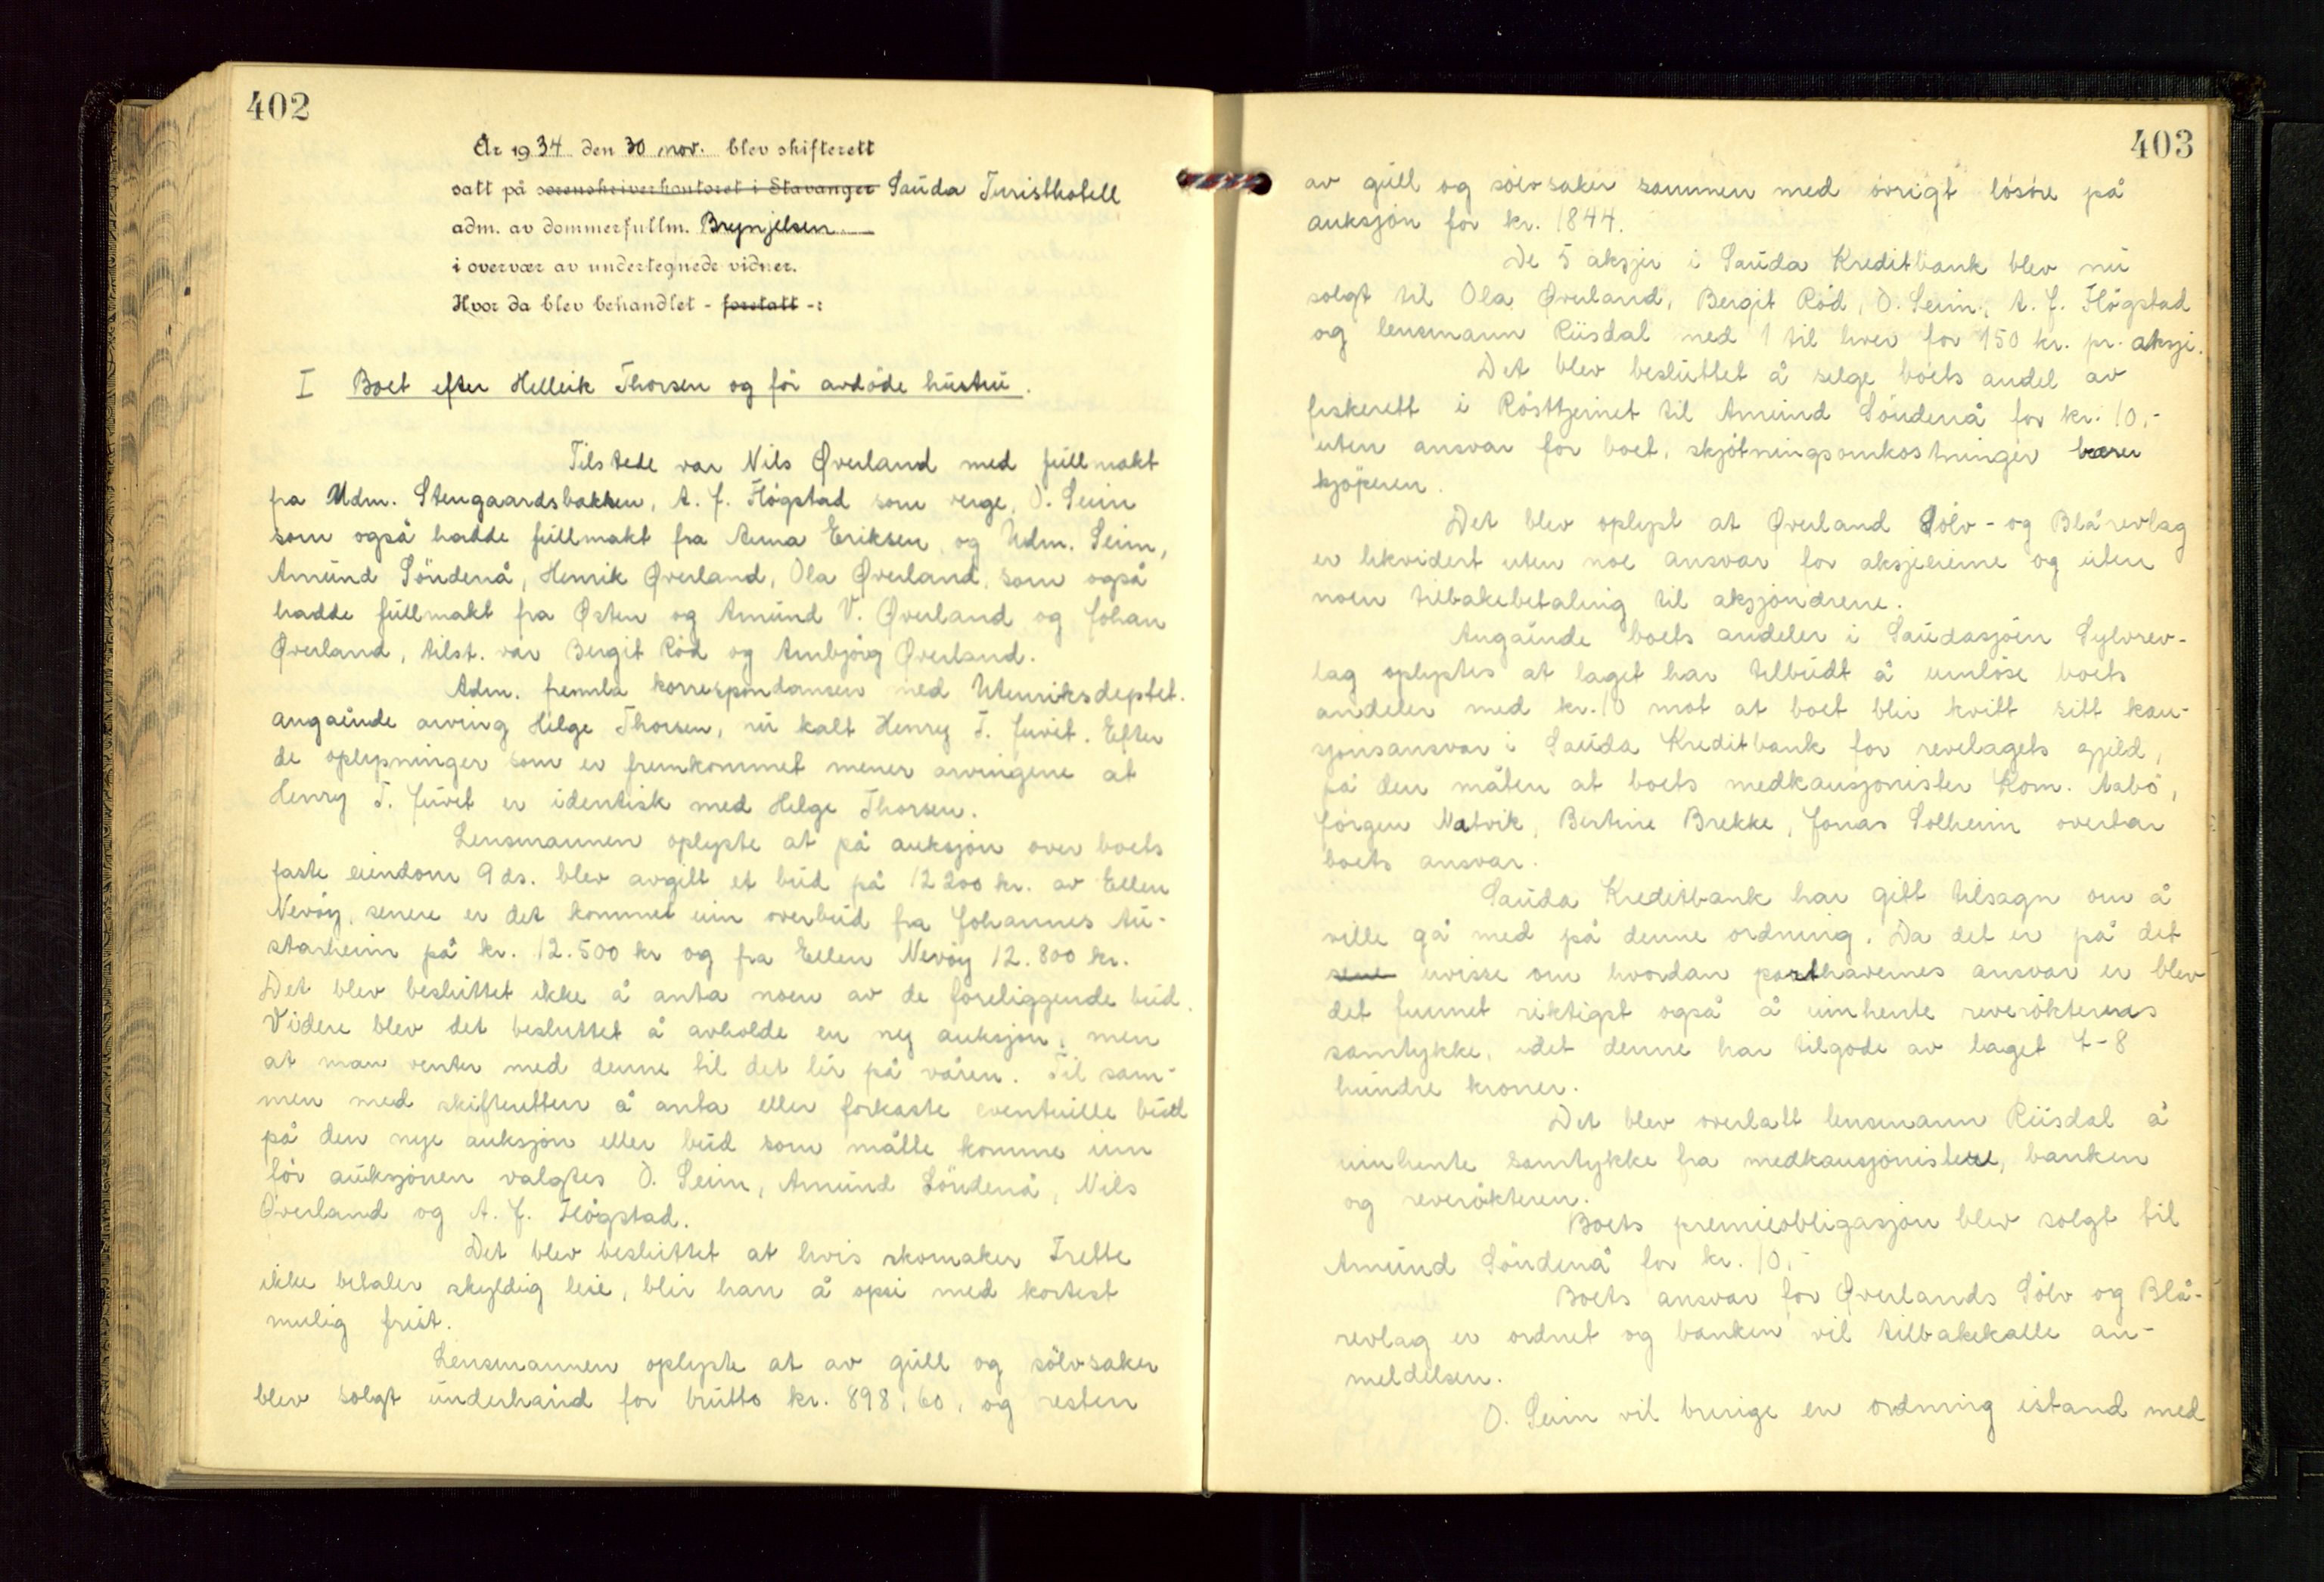 402
År 1934 den 30 nov. blev skifterett
satt på sorenskriverkontoret i Stavanger Sauda Turisthotell
adm. av dommerfullm. Brynjelsen
i overvær av undertegnede vidner.
Hvor da blev behandlet - forstatt -:
I Boet efter Helleik Thorsen og før avdøde hustru.
Tilstede var Nils Øverland med fullmakt
fra Mdm. Stengaardsbakken, A. J. Høgstad som verge, O. Seim
som også hadde fullmakt fra Anna Eriksen og Mdm. Seim,
Amund Söndenå, Henrik Øverland, Ola Øverland, som også
hadde fullmakt fra Østen og Amund V. Øverland og Johan
Øverland, tilst. var Bergit Rød og Ambjörg Øverland.
Adm. fremla korrespondansen med Utenriksdeptet.
angående arving Helge Thorsen, nu kalt Henry T. Juvet. Efter
de oplysninger som er fremkommet mener arvingene at
Henry T. Juvet er identisk med Helge Thorsen.
Lensmannen oplyste at på auksjon over boets
faste eiendom 9 ds. blev avgitt et bud på 12200 kr. av Ellen
Nevöy, senere er det kommet inn overbud fra Johannes Au-
starheim på kr. 12.500 kr og fra Ellen Nevöy 12.800 kr.
Det blev besluttet ikke å anta noen av de foreliggende bud.
Videre blev det besluttet å avholde en ny auksjon, men
at man venter med denne til det lir på våren. Til sam-
men med skifteretten å anta eller forkaste eventuelle bud
på den nye auksjon eller bud som måtte komme inn
för auksjonen valgtes O. Seim, Amund Söndenå, Nils
Øverland og A. J. Högstad.
Det blev besluttet at hvis skomaker Tvette
ikke betaler skyldig leie, blir han å opsi med kortest
mulig frist.
Lensmannen oplyste at av gull og sölvsaker
blev solgt underhånd for brutto kr. 898,60, og resten
403
av gull og sölvsaker sammen med övrigt lösöre på
auksjon for kr. 1844.
De 5 aksjer i Sauda Kreditbank blev nu
solgt til Ola Øverland, Bergit Röd, O. Seim, A. J. Högstad
og lensmann Riisdal med 1 til hver for 150 kr. pr. aksje.
Det blev besluttet å selge boets andel av
fiskerett i Rösttjernet til Amund Söndenå for kr. 10,-
uten ansvar for boet, skjötningsomkostninger bærer
kjöperen.
Det blev oplyst at Øverland Sölv- og Blårevlag
er likvidert uten noe ansvar for aksjeeierne og uten
noen tilbakebetaling til aksjonærene.
Angående boets andeler i Saudasjöen Sylvrev-
lag oplystes at laget har tilbudt å innlöse boets
andeler med kr. 10 mot at boet blir kvitt sitt kau-
sjonsansvar i Sauda Kreditbank for revelagets gjeld,
på den måten at boets medkausjonister Kom. Aabö,
Jörgen Natvik, Bertine Brekke, Jonas Solheim overtar
boets ansvar.
Sauda Kreditbank har gitt tilsagn om å
ville gå med på denne ordning. Da det er på det
uvisse om hvordan parthavernes ansvar er blev
det funnet riktigst også å innhente reverökterens
samtykke, idet denne har tilgode av laget 7-8
hundre kroner.
Det blev overlatt lensmann Riisdal å
innhente samtykke fra medkausjonistene, banken
og reverökteren.
Boets premieobligasjon blev solgt til
Amund Söndenå for kr. 10,-
Boets ansvar for Øverlands Sölv og Blå-
revlag er ordnet og banken vil tilbakekalle an-
meldelsen.
O. Seim vil bringe en ordning istand med